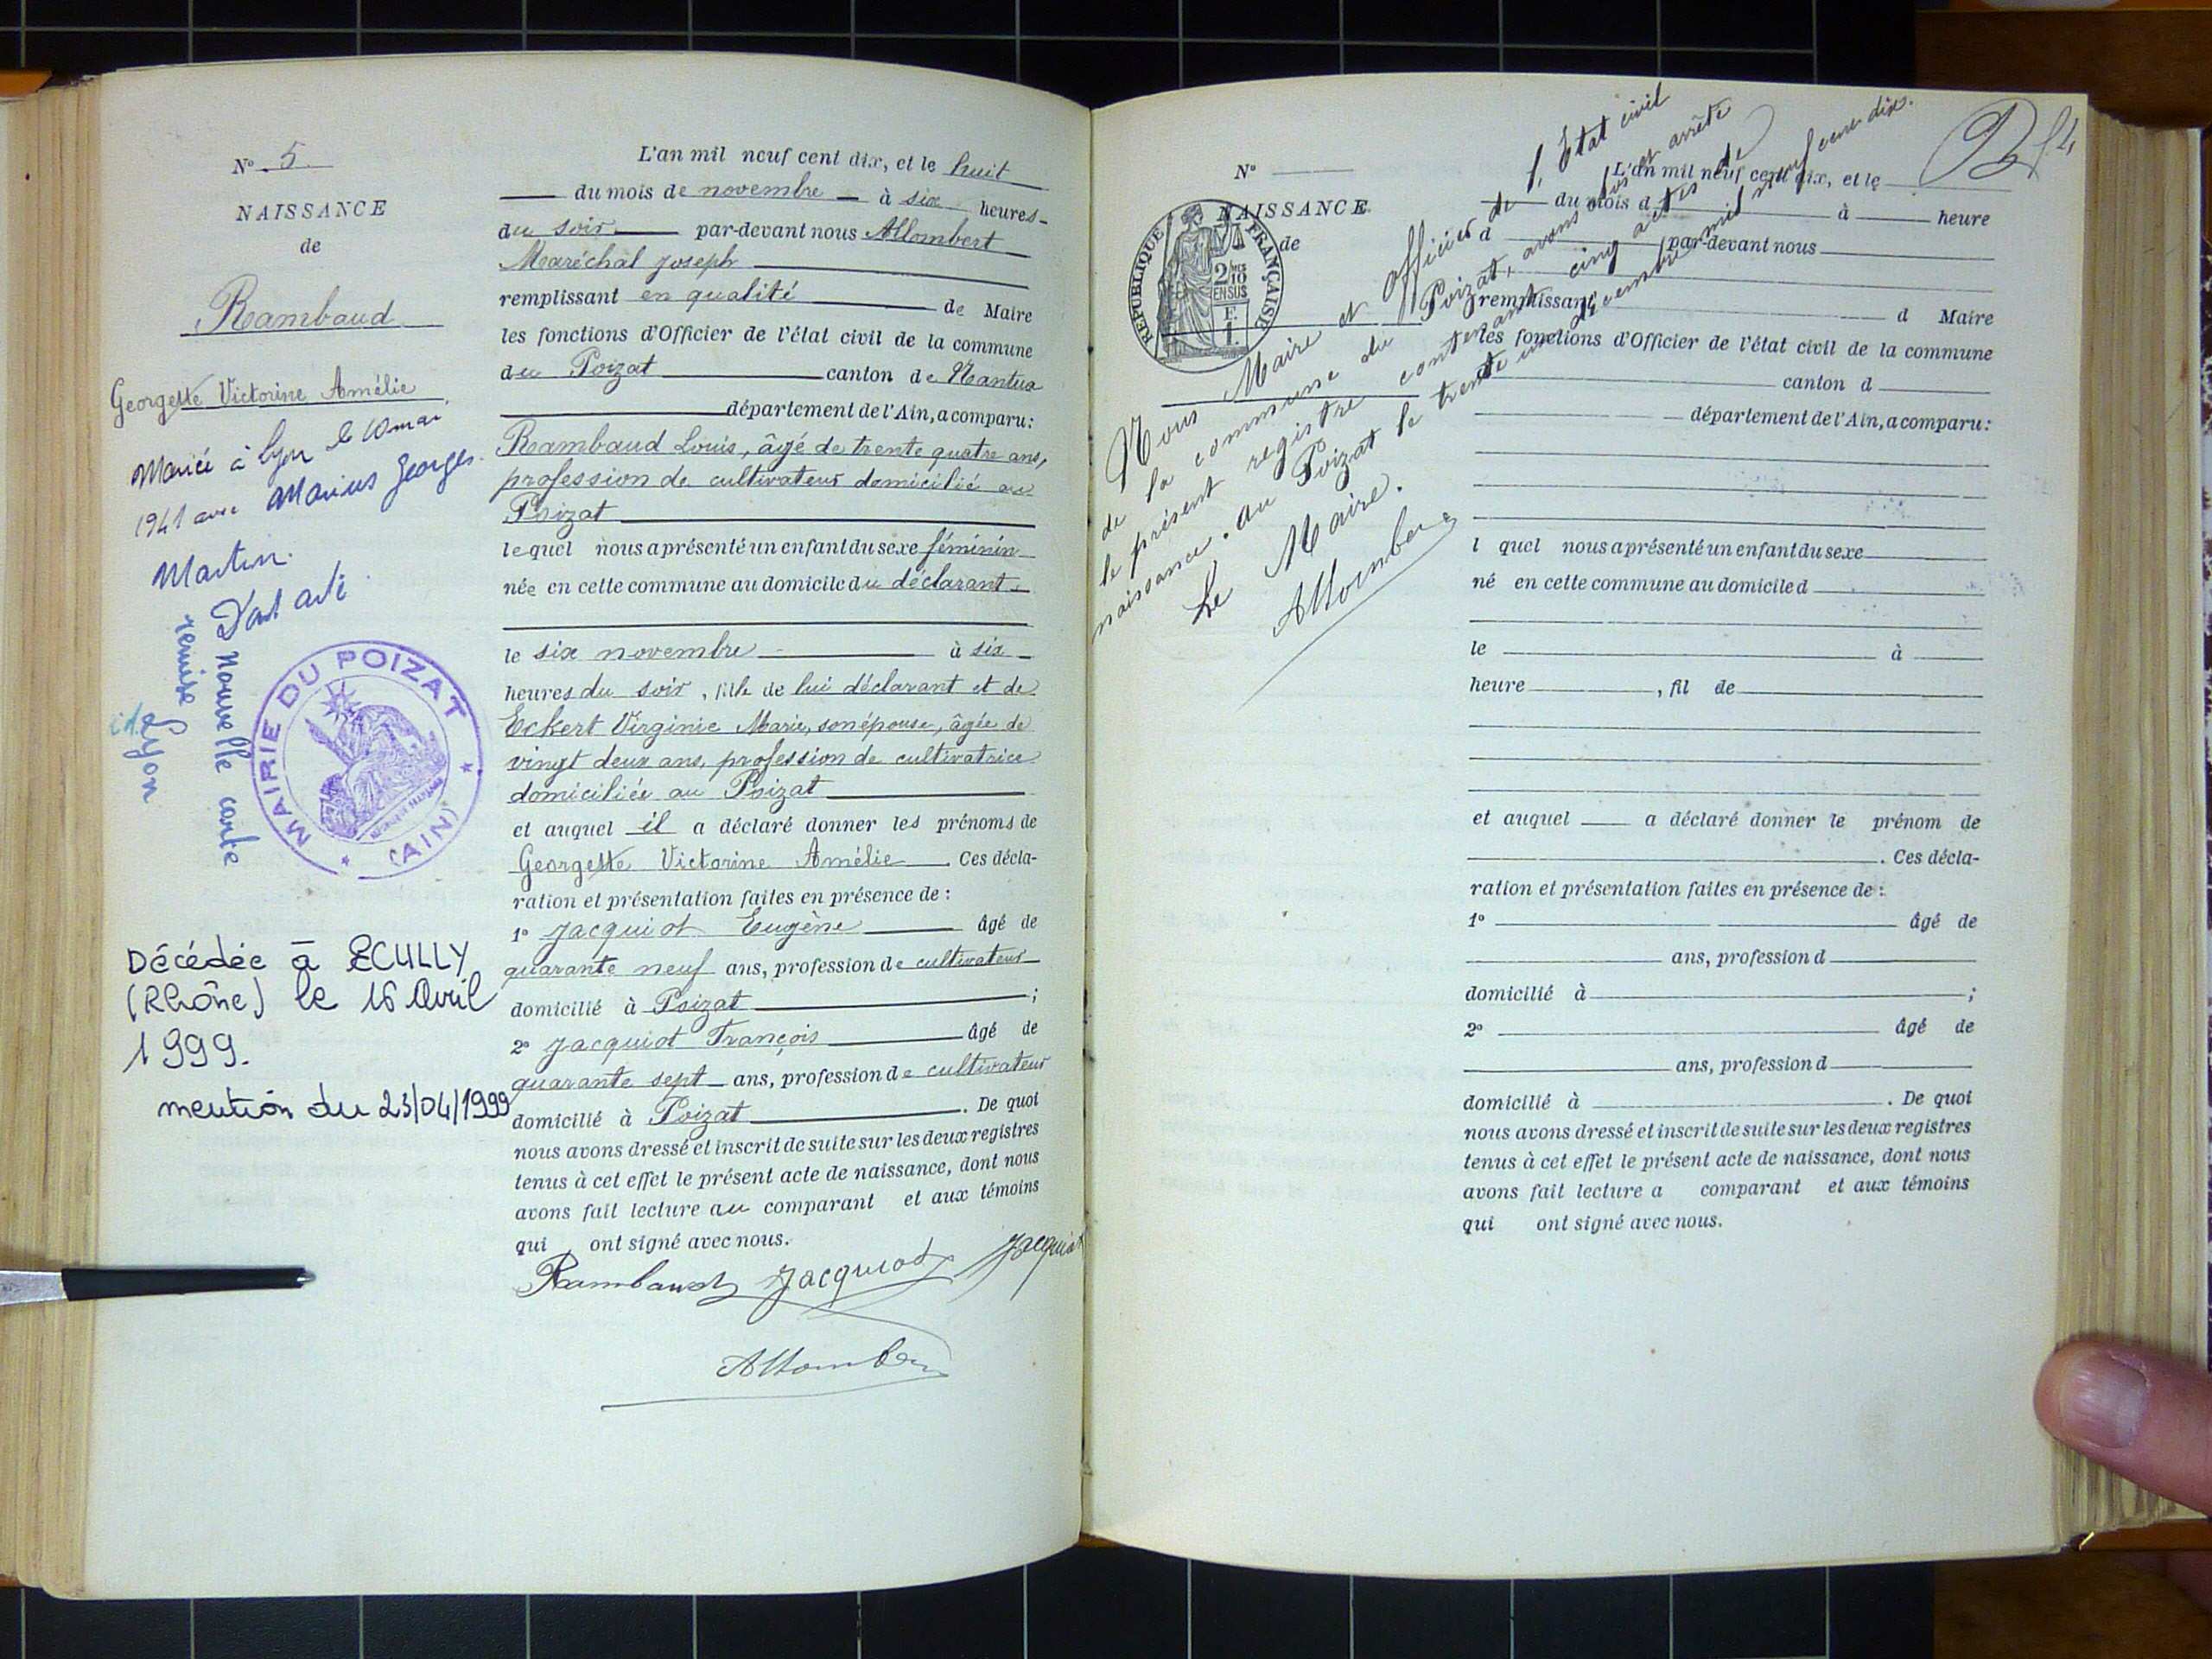 N° 5.
NAISSANCE
de
Rambaud
Georgette Victorine Amélie
Mariée à Lyon le 10 mai
1941 avec Marius Georges
Martin.
Nouvelle carte
remise
Lyon
MAIRIE DU POIZAT
(AIN)
Décédée à ECULLY
(Rhône) le 16 Avril
1999.
mention du 23/04/1999
L'an mil neuf cent dix, et le huit
du mois de novembre à six heures
du soir par-devant nous Allombert
Maréchal Joseph
remplissant en qualité de Maire
les fonctions d'Officier de l'état civil de la commune
du Poizat canton de Nantua
département de l'Ain, a comparu:
Rambaud Louis, âgé de trente quatre ans,
profession de cultivateur domicilié au
Poizat
lequel nous a présenté un enfant du sexe féminin
née en cette commune au domicile du déclarant
le six novembre à six
heures du soir, fille de lui déclarant et de
Eckert Virginie Marie, son épouse, âgée de
vingt deux ans, profession de cultivatrice
domiciliée au Poizat
et auquel il a déclaré donner les prénoms de
Georgette Victorine Amélie. Ces décla-
ration et présentation faites en présence de :
1° Jacquiot Eugène âgé de
quarante neuf ans, profession de cultivateur
domicilié à Poizat ;
2° Jacquiot François âgé de
quarante sept ans, profession de cultivateur
domicilié à Poizat. De quoi
nous avons dressé et inscrit de suite sur les deux registres
tenus à cet effet le présent acte de naissance, dont nous
avons fait lecture au comparant et aux témoins
qui ont signé avec nous.
Rambaud Jacquiot Jacquiot
Allombert
N°
NAISSANCE
de
REPUBLIQUE FRANÇAISE
2/10
EN SUS
Nous Maire et officier de l'Etat civil
de la commune du Poizat, avons clos et arrêté
le présent registre contenant cinq actes de
naissance. Au Poizat le trente un décembre mil neuf cent dix.
Le Maire.
Allombert
L'an mil neuf cent dix, et le
du mois d à heure
d par-devant nous
remplissant d Maire
les fonctions d'Officier de l'état civil de la commune
d canton d
département de l'Ain, a comparu:
l quel nous a présenté un enfant du sexe
né en cette commune au domicile d
le à
heure , fil de
et auquel a déclaré donner le prénom de
. Ces décla-
ration et présentation faites en présence de :
1° âgé de
ans, profession d
domicilié à ;
2° âgé de
ans, profession d
domicilié à . De quoi
nous avons dressé et inscrit de suite sur les deux registres
tenus à cet effet le présent acte de naissance, dont nous
avons fait lecture a comparant et aux témoins
qui ont signé avec nous.